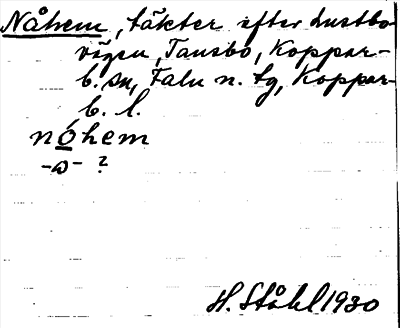 Nåhem, täkter efter Lustbo-
vägen, Tansbo, Koppar-
b. sn, Falu n. tg, Koppar-
b. l.
nóhem
-ω- ?
H. Ståhl 1930